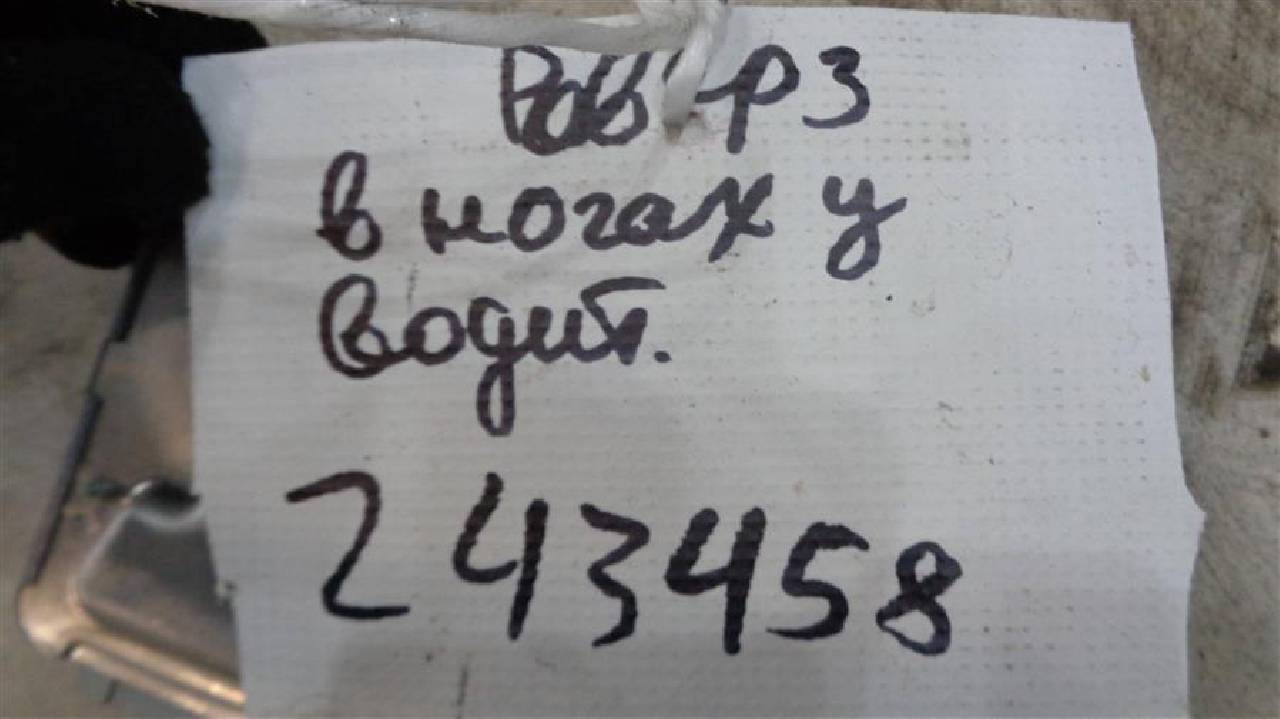 РЗ
в ногах у
водит.
243458